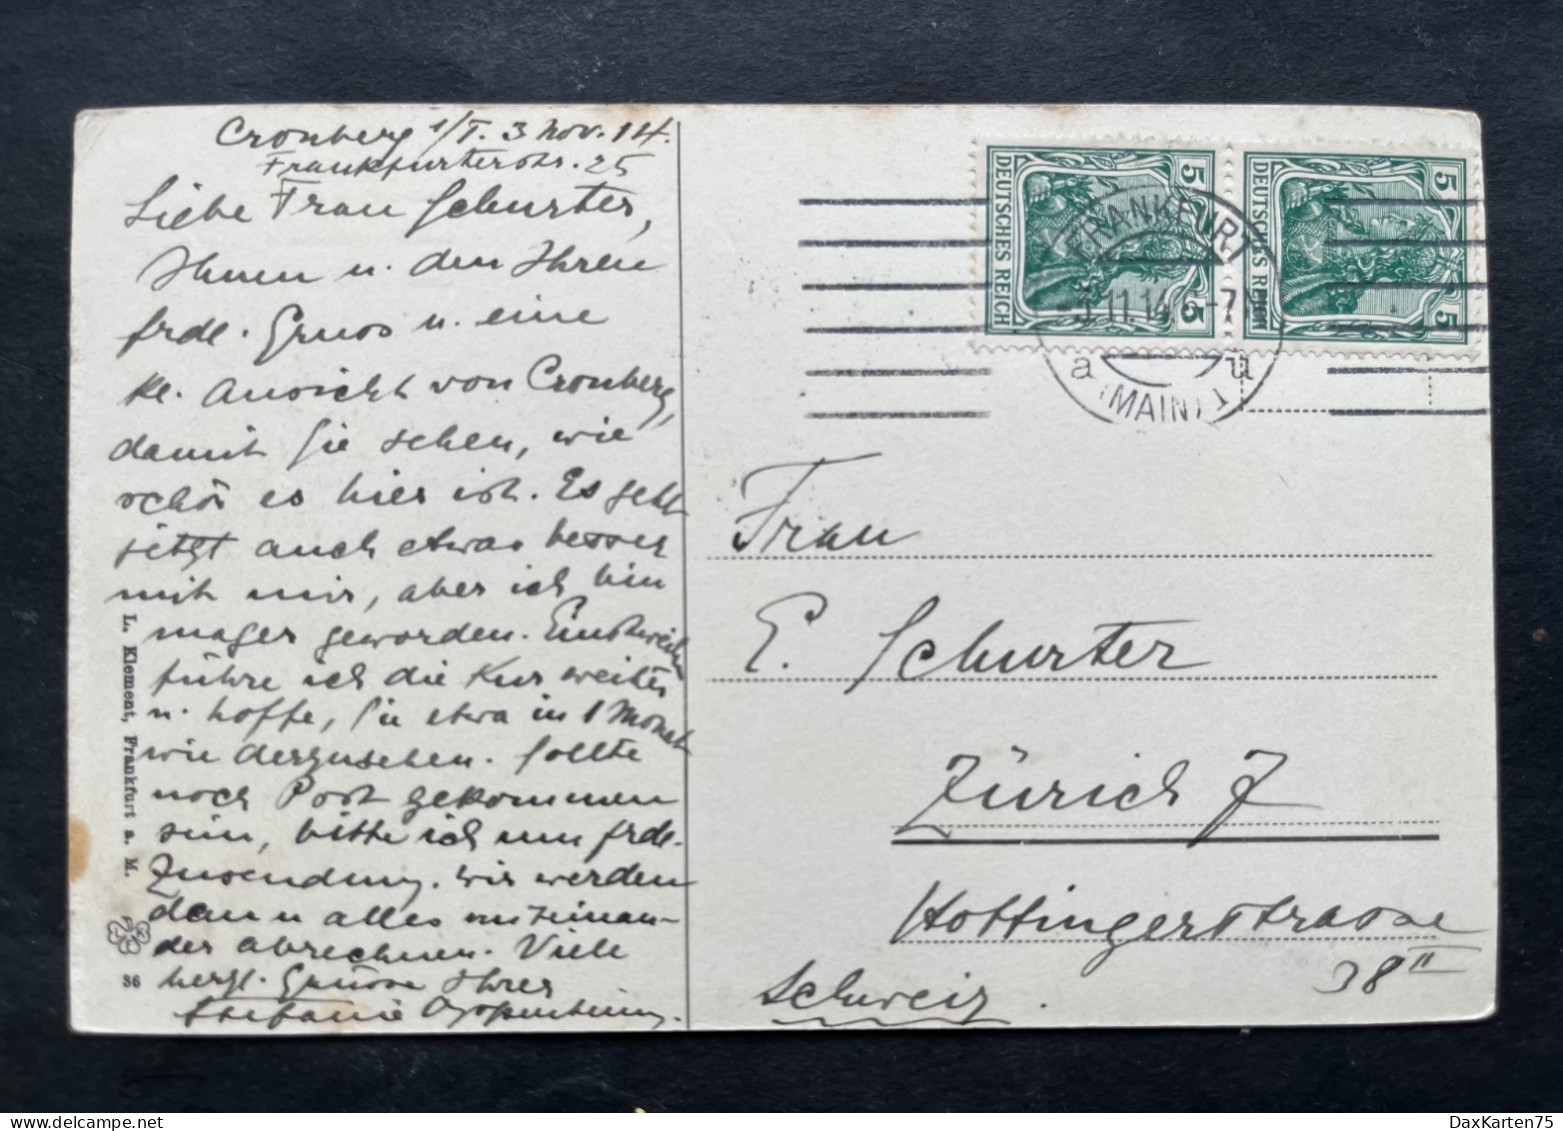 Cronberg 1/T. 3 Nov. 14.
Frankfurterstr. 25
Liebe Frau Schurter,
Ihnen u. den Ihren
frdl. Gruss u. eine
kl. Ansicht von Cronberg,
damit Sie sehen, wie
schön es hier ist. Es geht
jetzt auch etwas besser
mit mir, aber ich bin
mager geworden. Einstweilen
führe ich die Kur weiter
u. hoffe, Sie etwa in 1 Monat
wie derzusehen. Sollte
noch Post gekommen
sein, bitte ich um frdl.
Zusendung. Wir werden
dann alles miteinan-
der abrechnen. Viele
herzl. Grüsse Ihrer
Stefanie Oppenheim.
L. Klement, Frankfurt a. M.
36
DEUTSCHES REICH
5
5
DEUTSCHES REICH
5
5
FRANKFURT
-3.11.14 6-7
a u
(MAIN) 1
Frau
E. Schurter
Zürich 7
Hottingerstrasse
38 II
Schweiz.
DaxKarten75